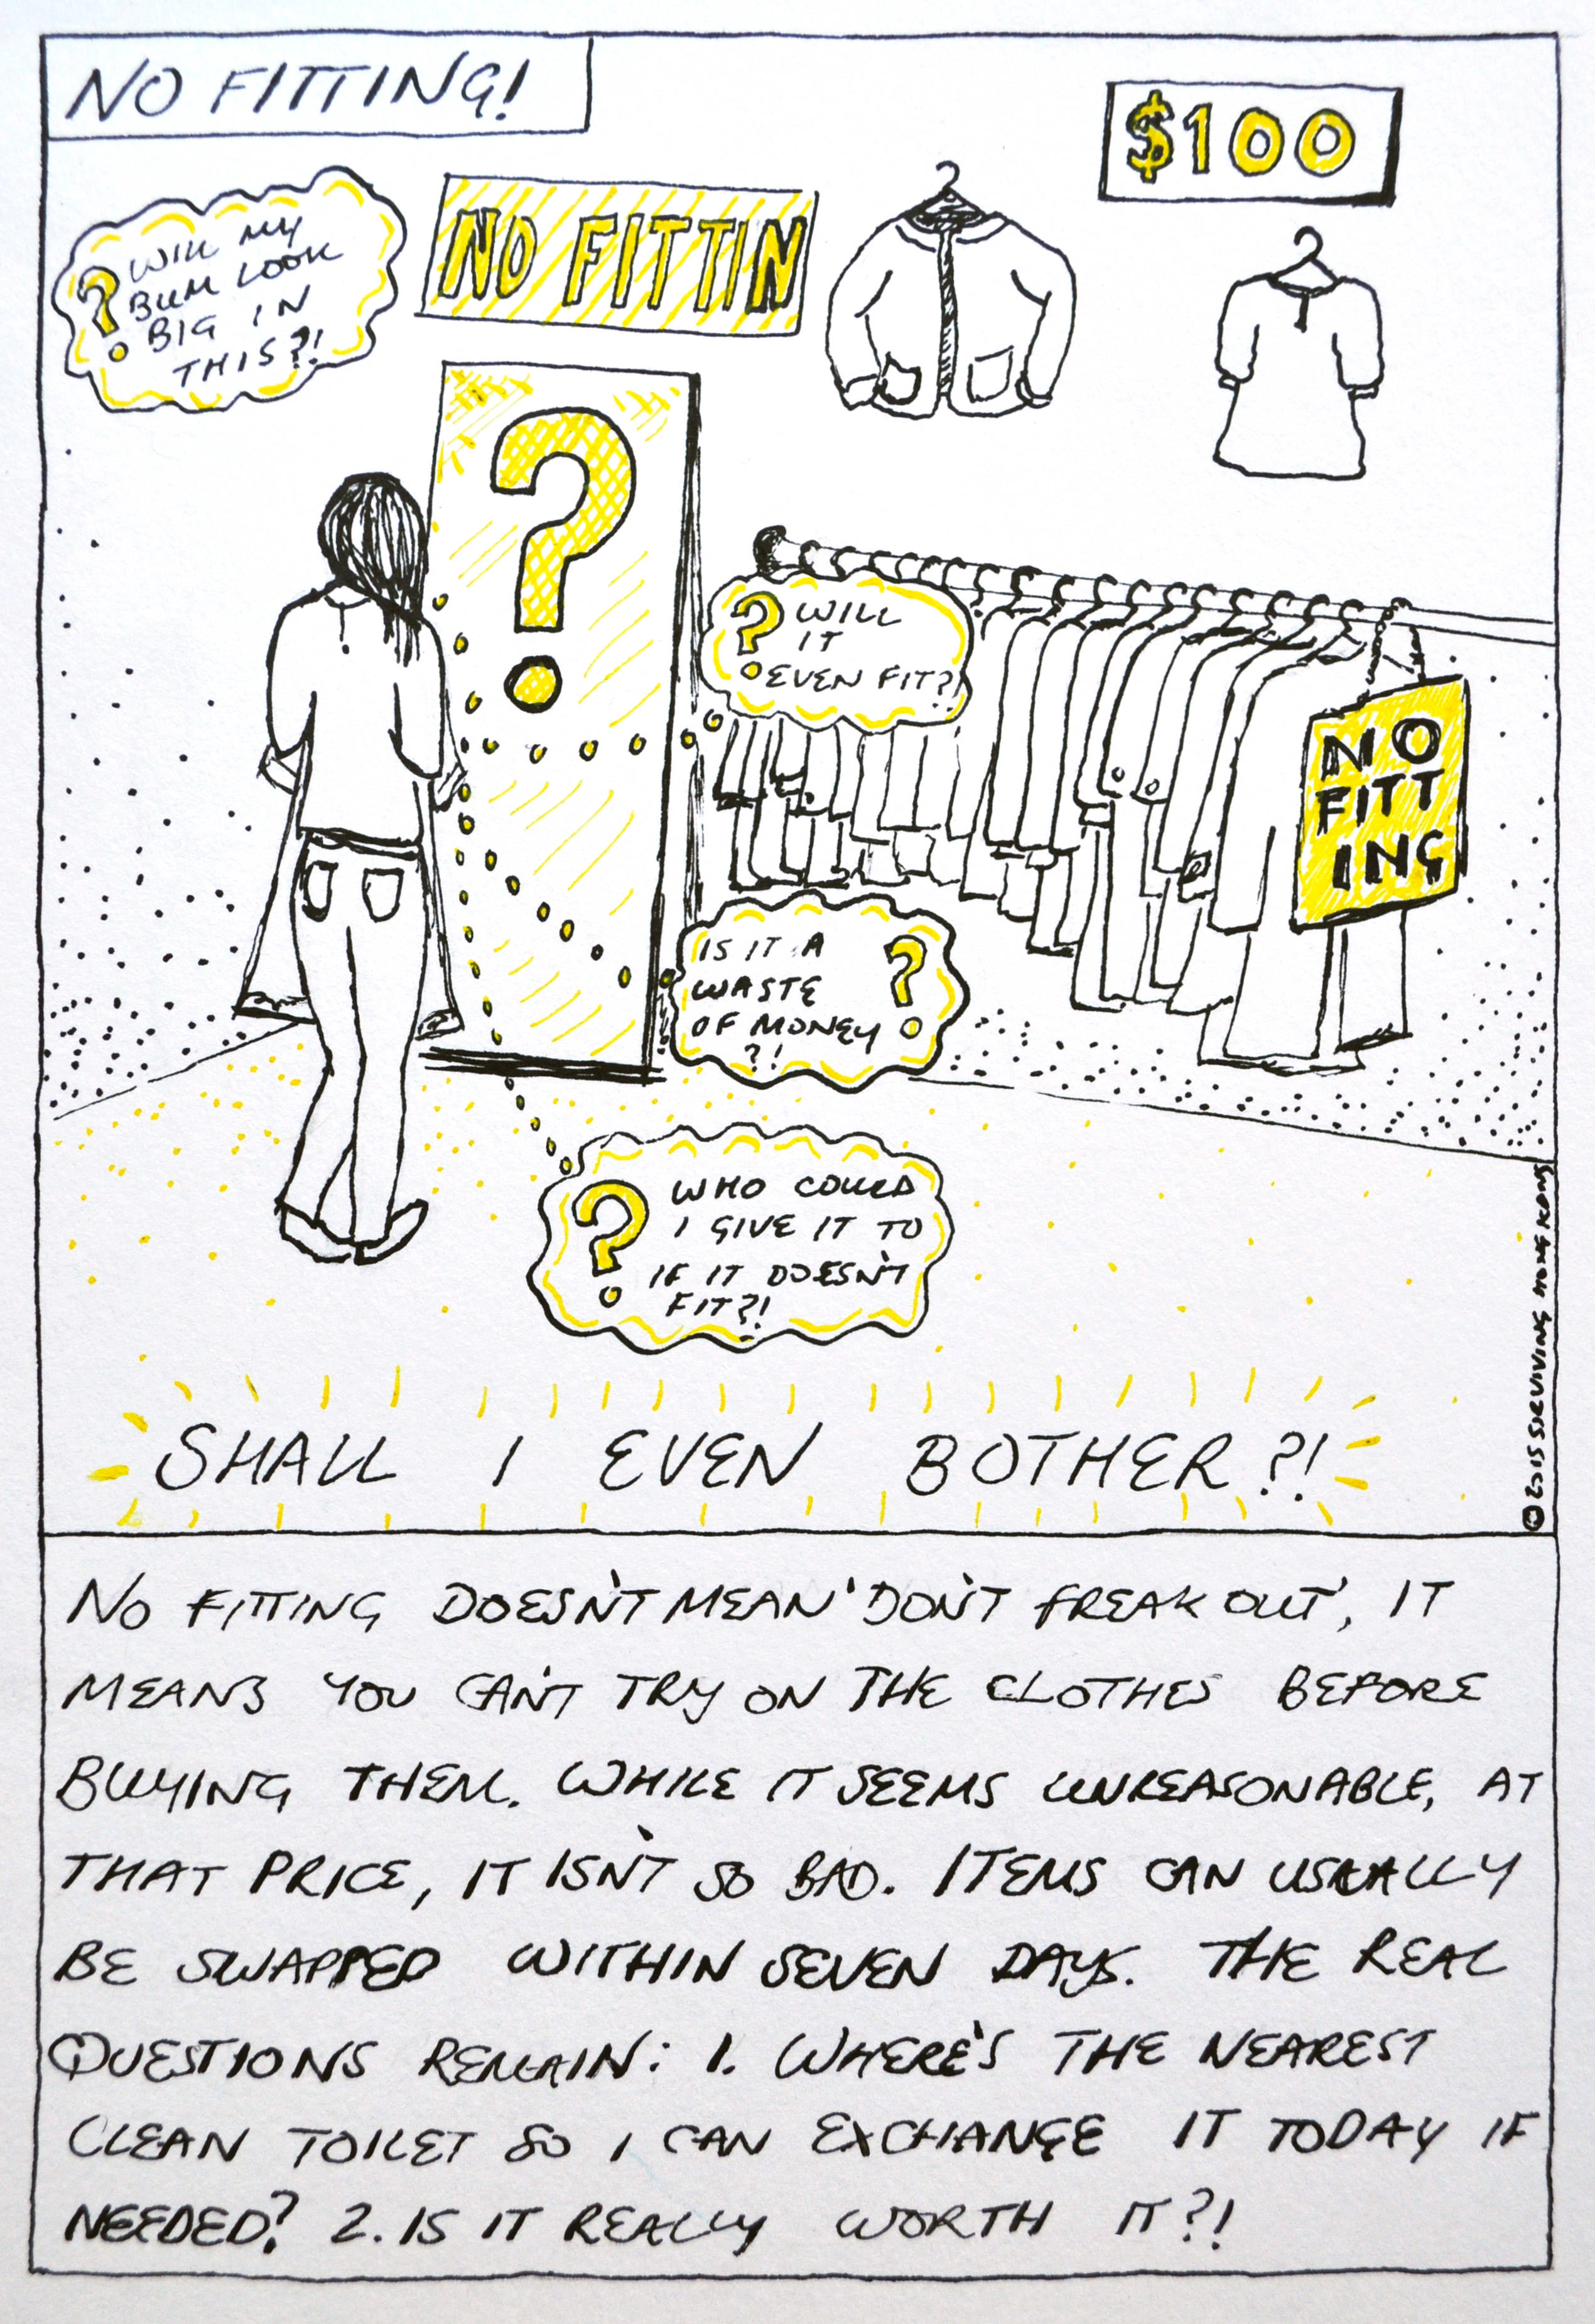 NO FITTING!
$100
WILL MY
BUM LOOK
BIG IN
THIS?!
NO FITTIN
?
? WILL
IT
EVEN FIT?!
NO
FITT
ING
IS IT A
WASTE
OF MONEY
?!
?
? WHO COULD
I GIVE IT TO
IF IT DOESN'T
FIT?!
SHALL I EVEN BOTHER?!
©2015 SURVIVING HONG KONG
NO FITTING DOESN'T MEAN 'DON'T FREAK OUT', IT
MEANS YOU CAN'T TRY ON THE CLOTHES BEFORE
BUYING THEM. WHILE IT SEEMS UNREASONABLE, AT
THAT PRICE, IT ISN'T SO BAD. ITEMS CAN USUALLY
BE SWAPPED WITHIN SEVEN DAYS. THE REAL
QUESTIONS REMAIN: 1. WHERE'S THE NEAREST
CLEAN TOILET SO I CAN EXCHANGE IT TODAY IF
NEEDED? 2. IS IT REALLY WORTH IT?!